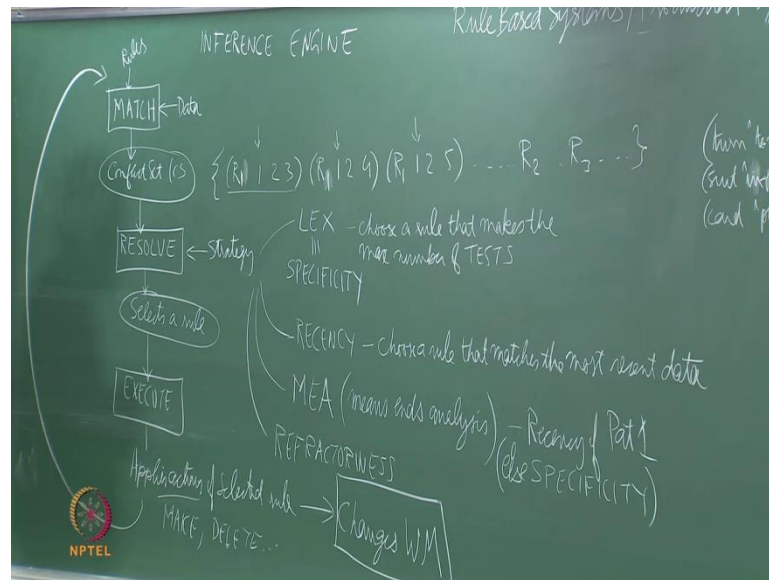 Rule Based Systems /
INFERENCE ENGINE
Rules
MATCH ← Data
Conflict Set (CS
{(R1 1 2 3) (R1 1 2 4) (R1 1 2 5) ..... R2 .. R3 ... }
(turn
(suit
(card
RESOLVE ← Strategy
LEX - choose a rule that makes the
max number of TESTS
SPECIFICITY
Selects a rule
RECENCY - choose a rule that matches the most recent data
EXECUTE
MEA (means ends analysis) - Recency of Patt 1
(else SPECIFICITY)
REFRACTORINESS
actions of selected rule → Changes WM
MAKE, DELETE...
NPTEL